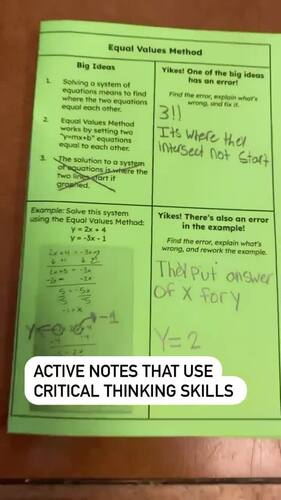 Equal Values Method
Big Ideas
1. Solving a system
of equations means to find
where the two equations
equal each other.
2. Equal Values Method
works by setting two
"y=mx+b" equations
equal to each other.
3. The solution to a system
of equations is where the
two lines start if
graphed.
Yikes! One of the big ideas
has an error!
Find the error, explain what's
wrong, and fix it.
3!!
Its where they
intersect not start
Example: Solve this system
using the Equal Values Method:
y = 2x + 4
y = -3x - 1
5 = -5x
5
-1
Yikes! There's also an error
in the example!
Find the error, explain what's
wrong, and rework the example.
They put answer
of X for y
Y=2
ACTIVE NOTES THAT USE
CRITICAL THINKING SKILLS